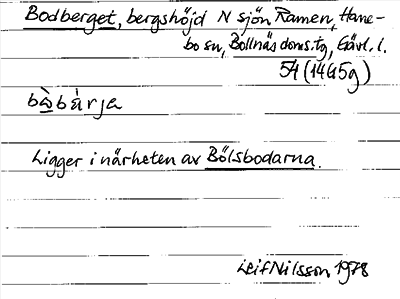 Bodberget, bergshöjd N sjön Ramen, Hane-
bo sn, Bollnäs doms.tg, Gävl. l.
54 (14G5g)
bàbárja
Ligger i närheten av Bölsbodarna.
Leif Nilsson 1978